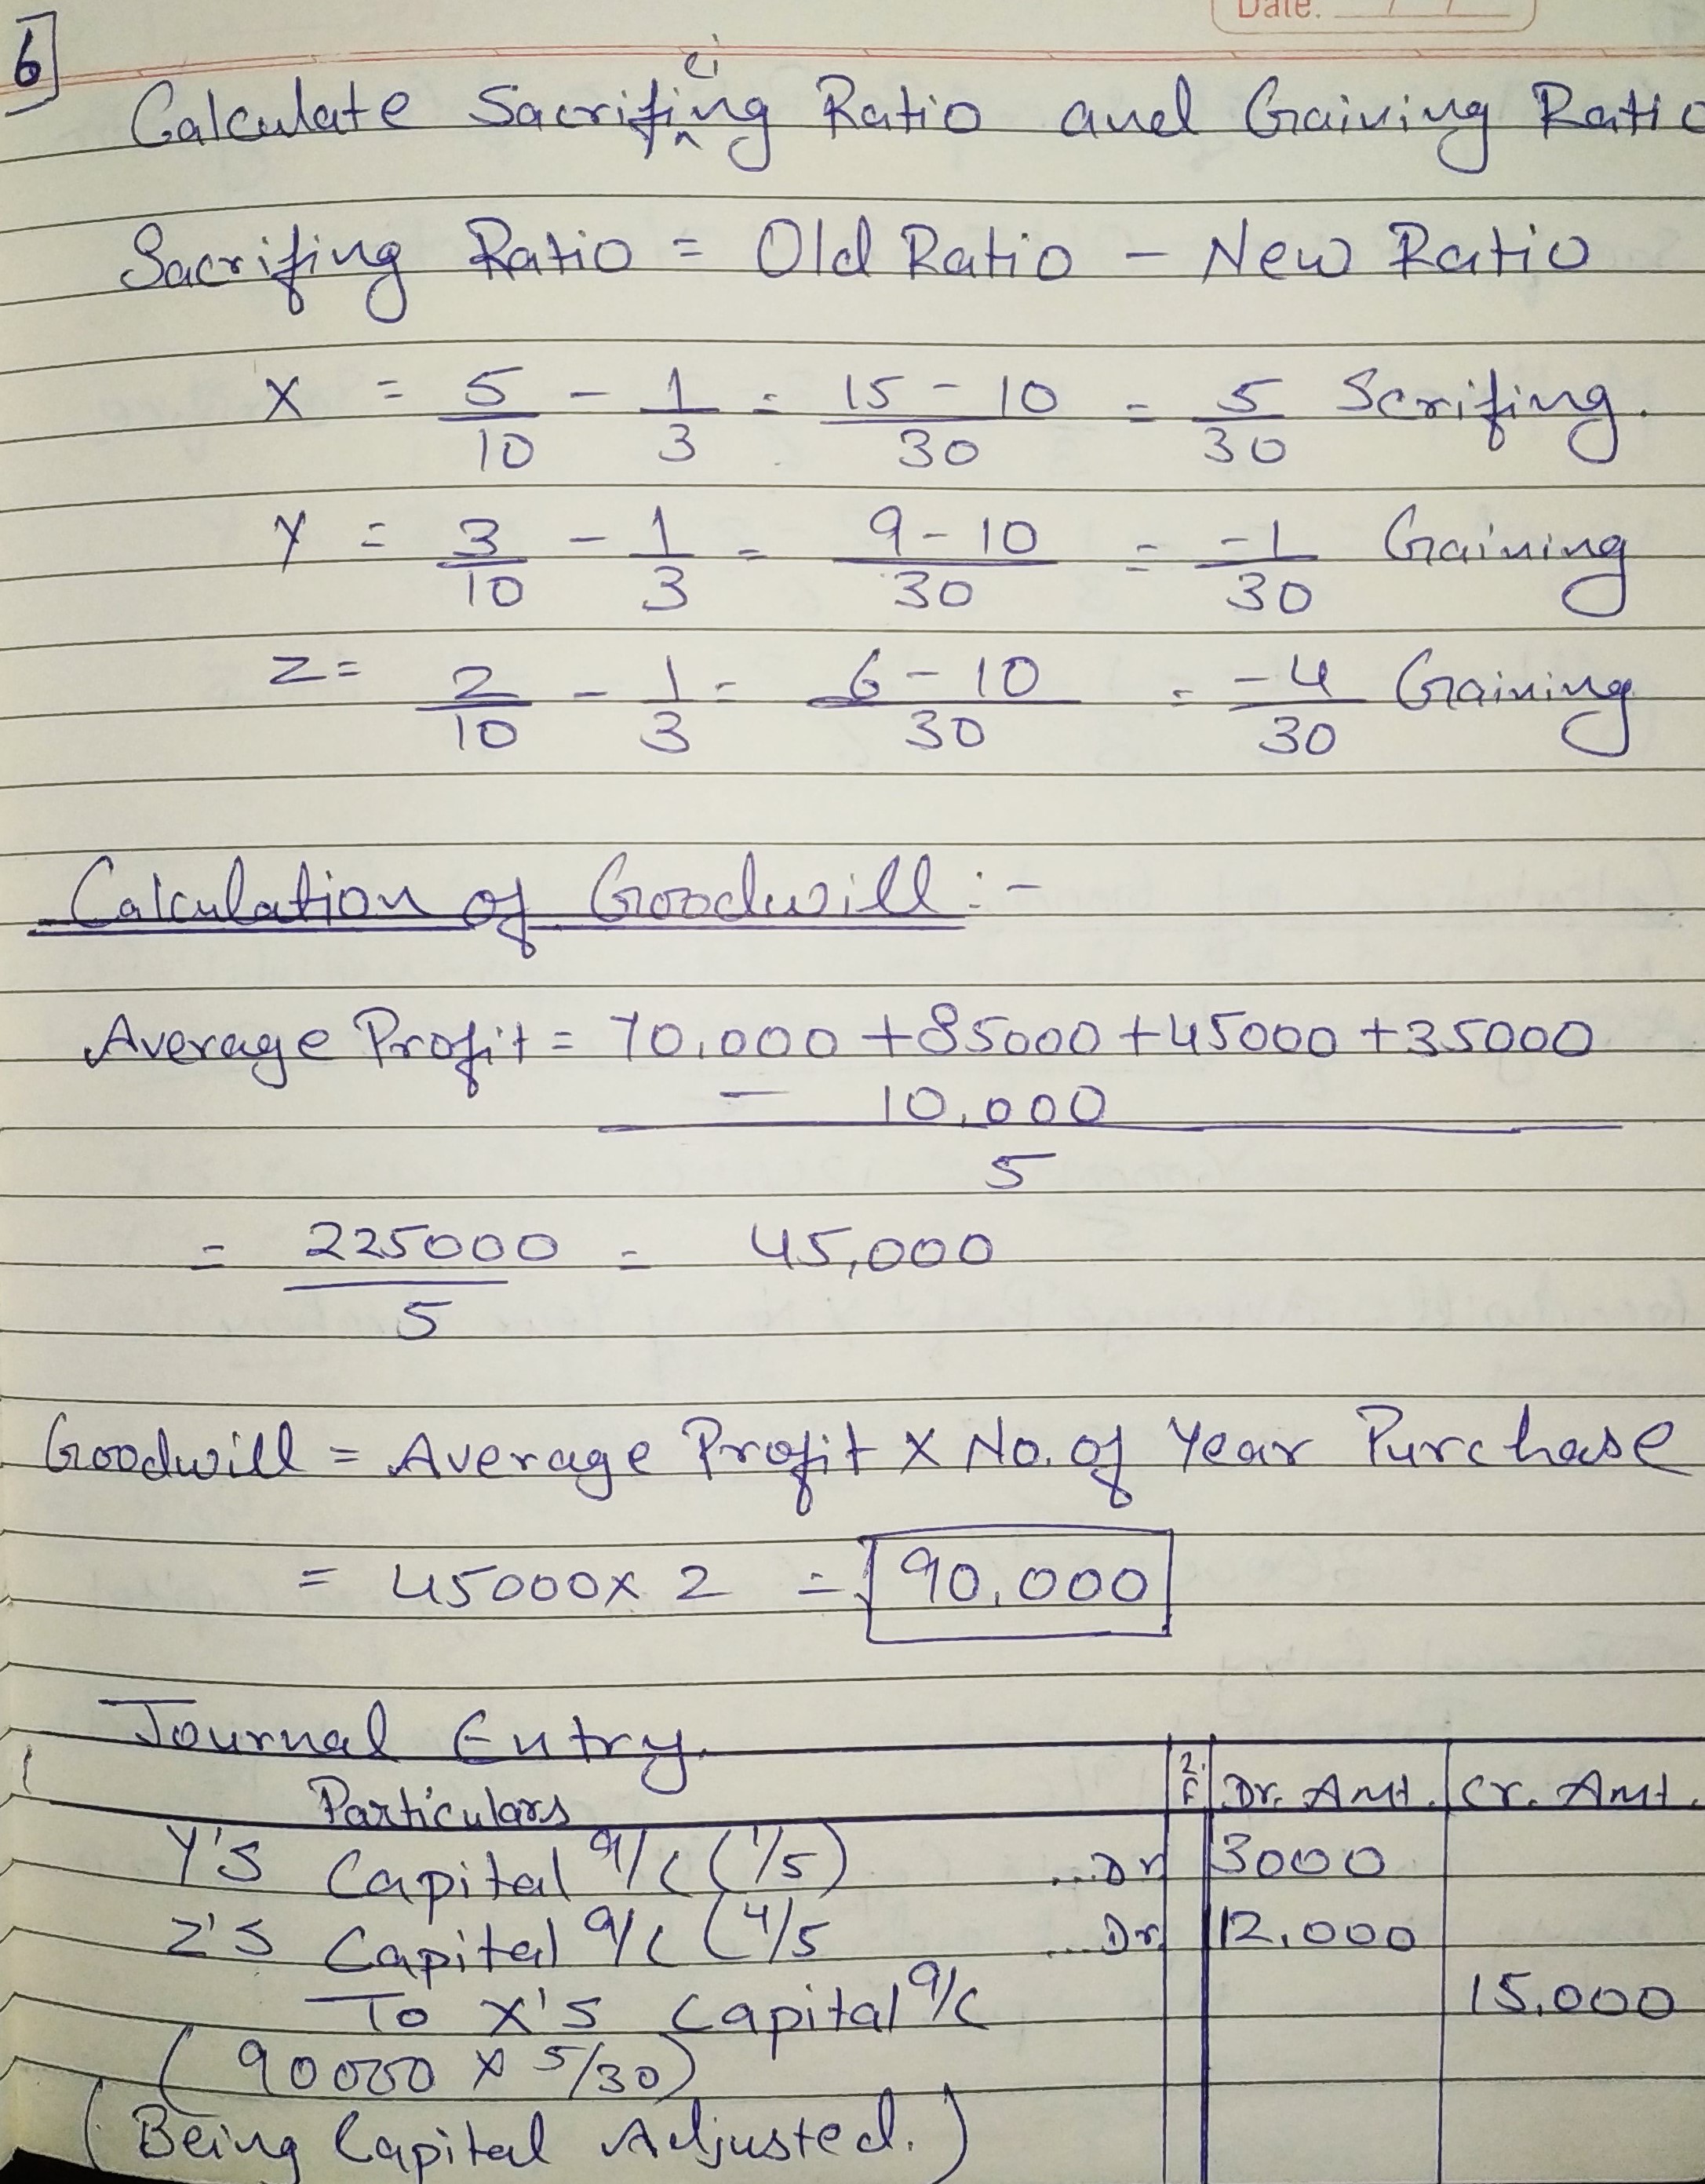 Date. / /
6
Calculate Sacrificing Ratio and Gaining Ratio
Sacrifing Ratio = Old Ratio - New Ratio
X = 5/10 - 1/3 = 15 - 10/30 = 5/30 Scrifing.
Y = 3/10 - 1/3 = 9 - 10/30 = -1/30 Gaining
Z = 2/10 - 1/3 = 6 - 10/30 = -4/30 Gaining
Calculation of Goodwill :-
Average Profit = 70,000 + 85000 + 45000 + 35000
- 10,000
5
= 225000/5 = 45,000
Goodwill = Average Profit x No. of Year Purchase
= 45000 x 2 = 90,000
Journal Entry.
Particulars Dr. Amt. Cr. Amt.
Y'S Capital a/c (1/5) ...Dr 3000
Z'S Capital a/c (4/5 ...Dr. 12,000
To X'S Capital a/c 15,000
(90000 x 5/30)
(Being Capital Adjusted.)